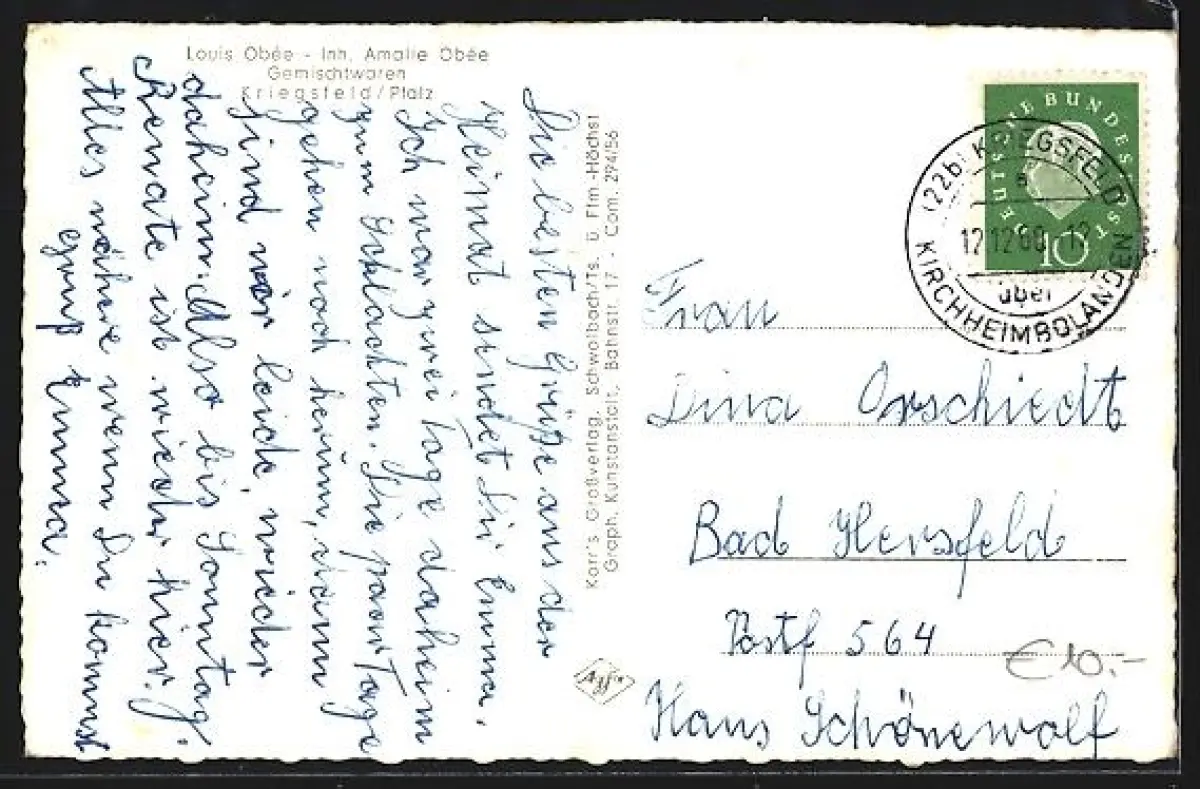 Louis Obée - Inh. Amalie Obée
Gemischtwaren
Kriegsfeld/Pfalz
Die besten Grüße aus der
Heimat sendet Dir Emma.
Ich war zwei Tage daheim
zum Schlachten. Die paar Tage
gehen noch herum, dann
sind wir beide wieder
daheim. Also bis Sonntag.
Renate ist wieder hier.
Alles nähere wenn Du kommst
Gruß Emma.
Karr's Großverlag, Schwalbach/Ts. ü. Ffm.-Höchst
Graph. Kunstanstalt, Bahnstr. 17 - Com. 294/56
Agfa
DEUTSCHE BUNDESPOST
10
(22b) KRIEGSFELD
a
12.12.60.-12
über
KIRCHHEIMBOLANDEN
Frau
Dina Orschiedt
Bad Hersfeld
Postf 564
€ 10.-
Hans Schönewolf